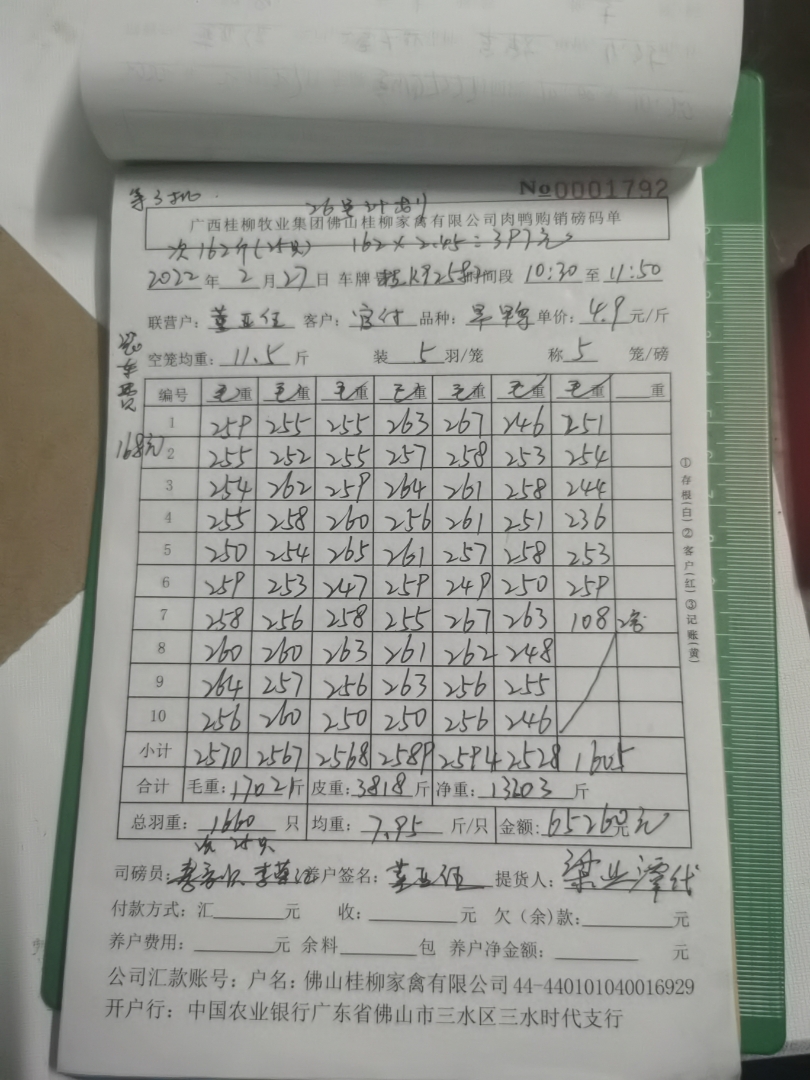 №0001792
广西桂柳牧业集团佛山桂柳家禽有限公司肉鸭购销磅码单
次162斤(25只) 162×2.45=397元
2022年2月27日 车牌 时间段 10:30至11:50
联营户: 客户: 品种: 单价:4.9元/斤
空笼均重:11.5斤 装5羽/笼 称5笼/磅
168元
编号 毛重 毛重 毛重 毛重 毛重 毛重 毛重 重
1 259 255 255 263 267 246 251
2 255 252 255 257 258 253 254
3 254 262 259 264 261 258 244
4 255 258 260 256 261 251 236
5 250 254 265 261 257 258 253
6 259 253 247 259 249 250 259
7 258 256 258 255 267 263 108
8 260 260 263 261 262 248
9 264 257 256 263 256 255
10 256 260 250 250 256 246
小计 2570 2567 2568 2589 2594 2528 1605
合计 毛重:17021斤 皮重:3818斤 净重:13203斤
总羽重:1660只 均重:7.95斤/只 金额:65260元
次25只
司磅员: 养户签名: 提货人:
付款方式:汇 元 收: 元 欠(余)款: 元
养户费用: 元 余料 包 养户净金额: 元
公司汇款账号:户名:佛山桂柳家禽有限公司44-440101040016929
开户行:中国农业银行广东省佛山市三水区三水时代支行
①存根(白)②客户(红)③记账(黄)